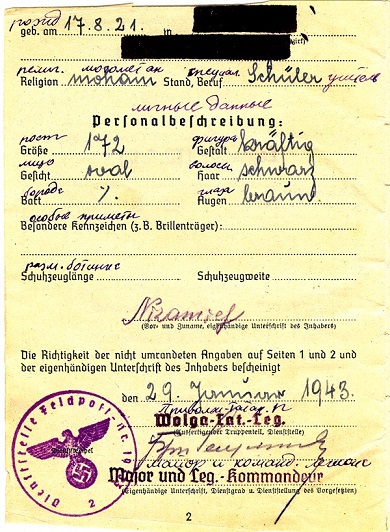 рожд
geb. am 17.8.21. in
религ. магометан специал учитель
Religion moham Stand, Beruf Schüler
личные данные
Personalbeschreibung:
рост фигура
Größe 172 Gestalt kräftig
лицо волосы
Gesicht oval Haar schwarz
борода глаза
Bart Augen braun
особые приметы
Besondere Kennzeichen (z. B. Brillenträger):
разм. ботинк
Schuhzeuglänge Schuhzeugweite
(Vor- und Zuname, eigenhändige Unterschrift des Inhabers)
Die Richtigkeit der nicht umrandeten Angaben auf Seiten 1 und 2 und
der eigenhändigen Unterschrift des Inhabers bescheinigt
den 29. Januar 1943.
Wolga-tat.-Leg.
(Ausfertigender Truppenteil, Dienststelle)
майор и команд. легиона
Major und Leg.-Kommandeur
(Eigenhändige Unterschrift, Dienstgrad u. Dienststellung des Vorgesetzten)
Dienststelle Feldpost-Nr.
2
2